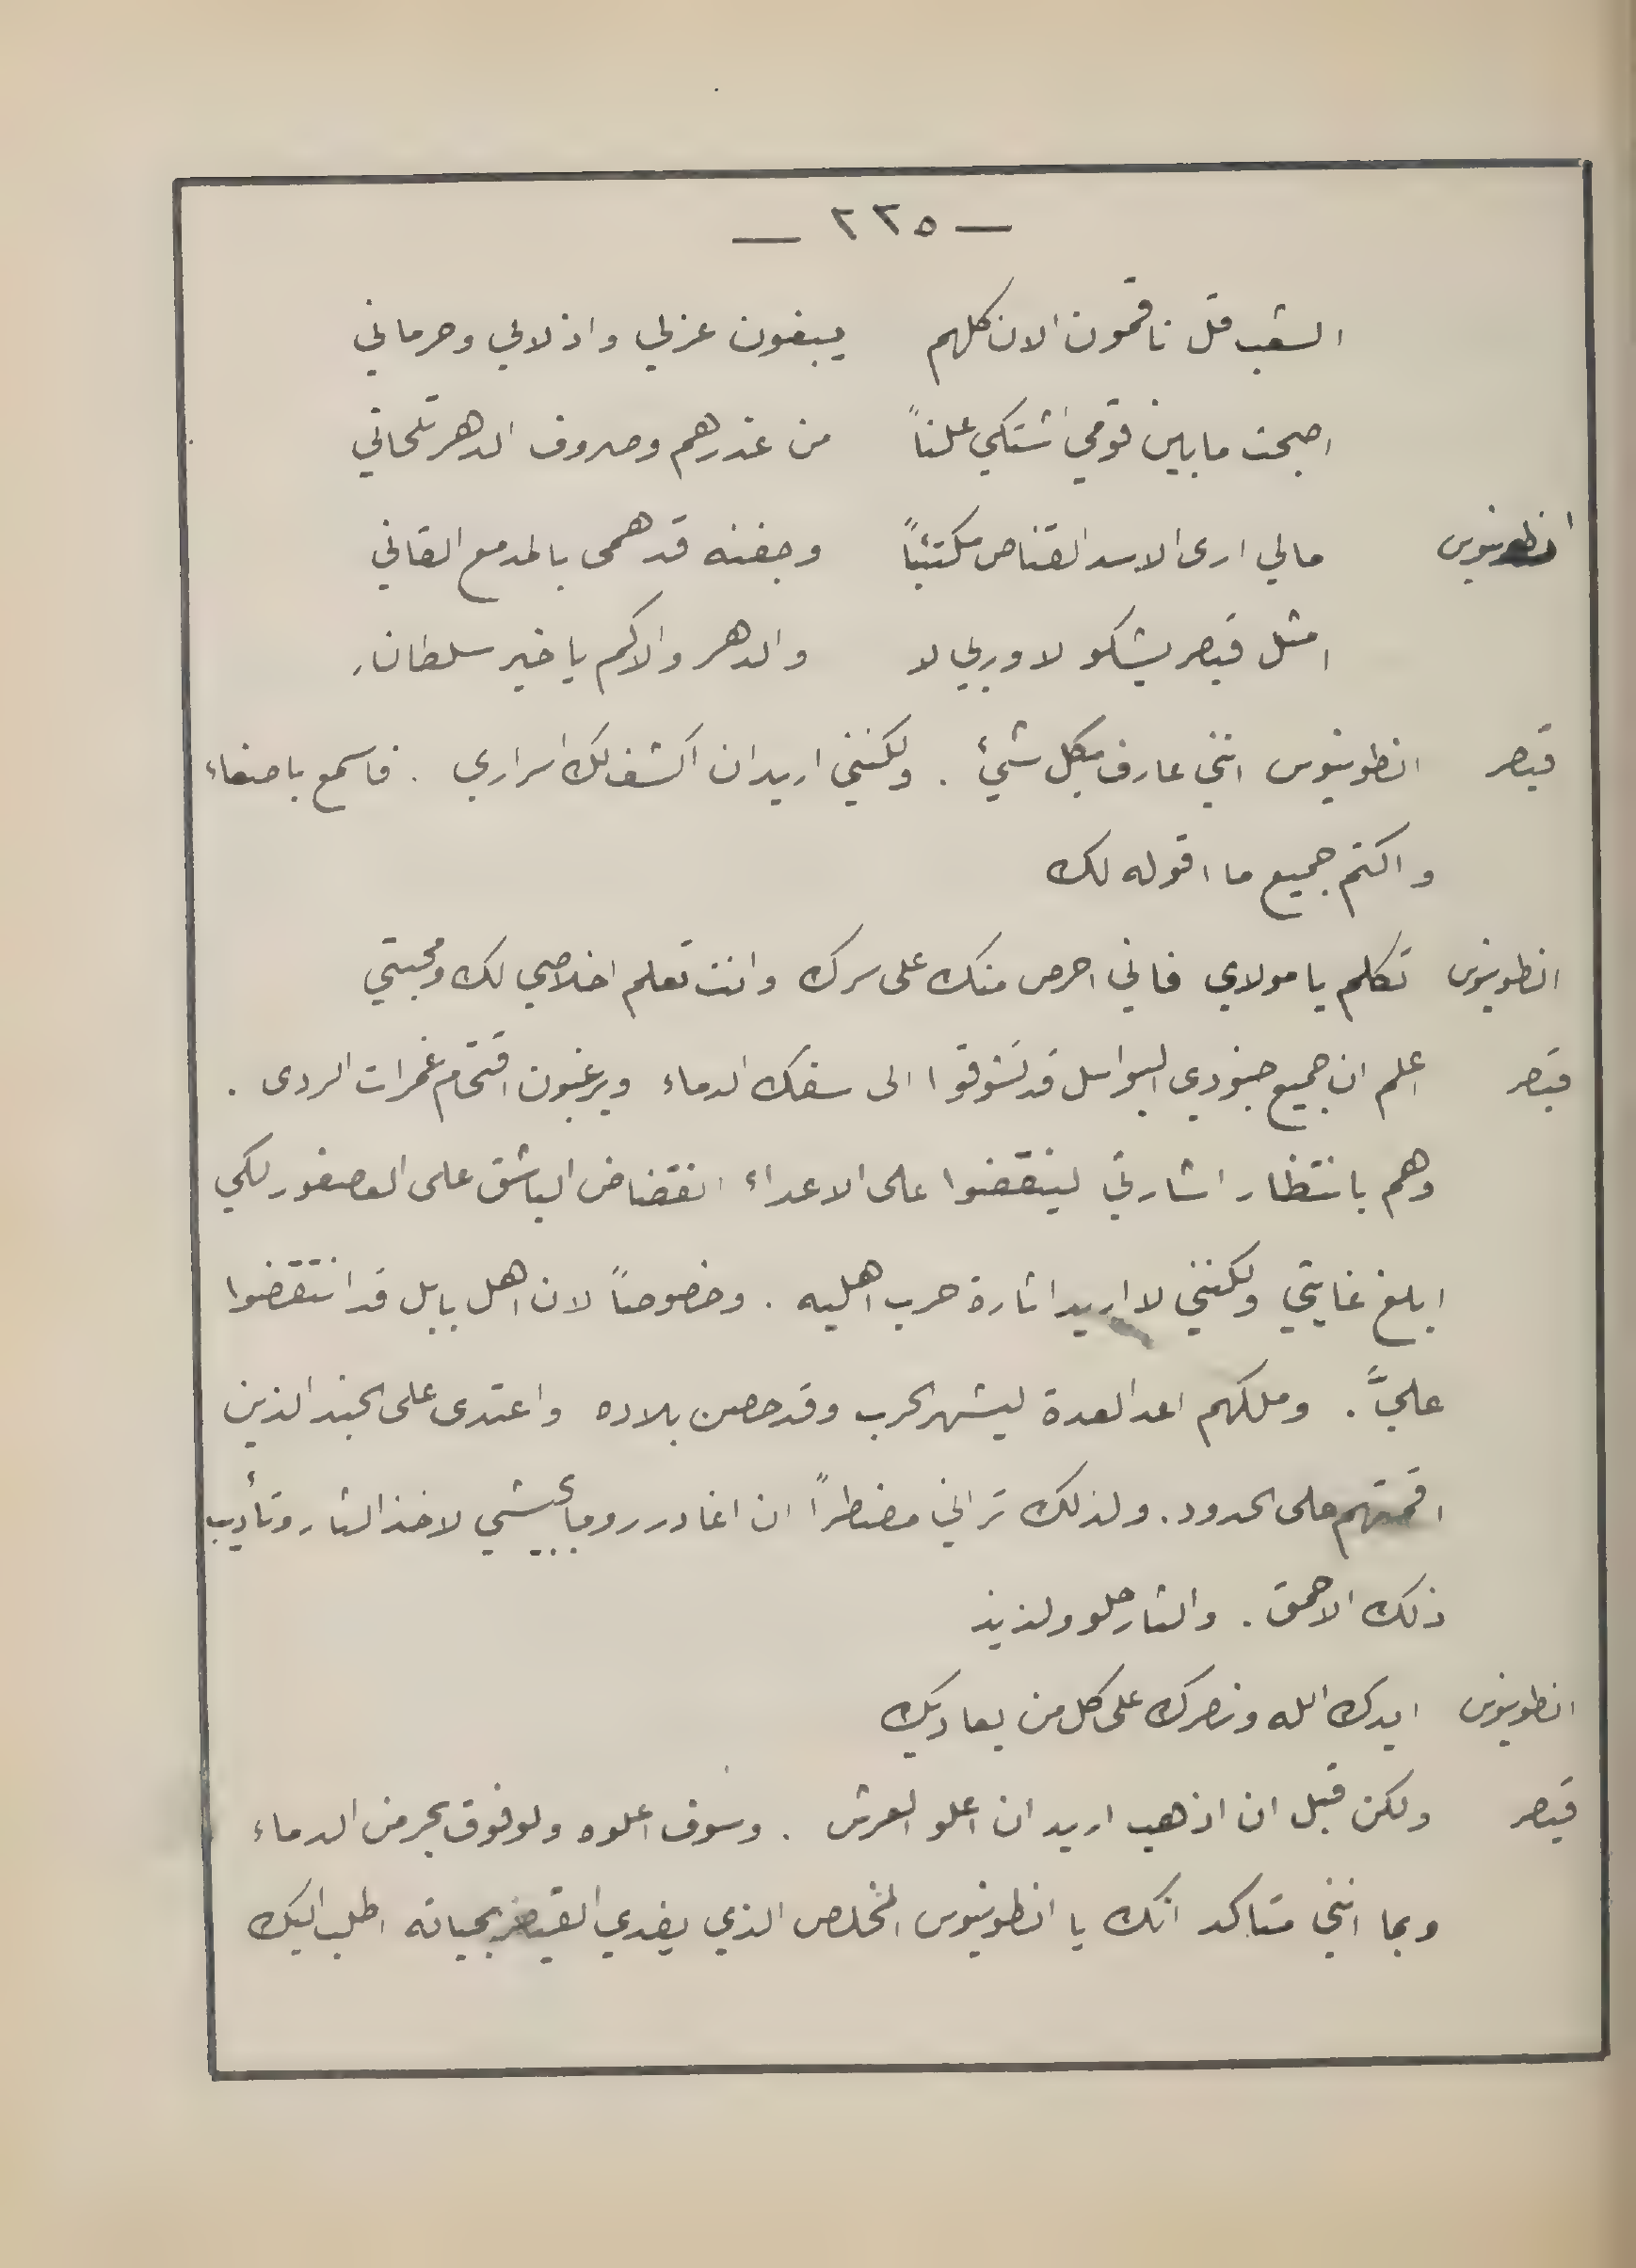 — ٢٢٥ —
الشعب قل ناقمون الان كلهم يبغون عزلي واذلالي وحرماني
اصبحت مابين قومي اشتكي علناً من غدرهم وصروف الدهر تلحاني
انطونيوس مالي ارى الاسد القناص مكتئباً وجفنه قد همى بالمدمع القاني
امثل قيصر يشكو لا وربي لا والدهر والاكم يا خير سلطان
قيصر انطونيوس انني عارف بكل شيئ . ولكنني اريد ان اكشف لك اسراري . فاسمع باصغاء
واكتم جميع ما اقوله لك
انطونيوس تكلم يا مولاي فاني احرص منك على سرك وانت تعلم اخلاصي لك ومحبتي
قيصر اعلم ان جميع جنودي البواسل قد تشوقوا الى سفك الدماء ويرغبون اقتحام غمرات الردى .
وهم بانتظار اشارتي لينقضوا على الاعداء انقضاض الباشق على العصفور لكي
ابلغ غايتي ولكنني لا اريد اثارة حرب اهليه . وخصوصاً لان اهل بابل قد انتقضوا
عليَّ . وملكهم اعد العدة ليشهر الحرب وقد حصن بلاده واعتدى على الجند الذين
اقمتهم على الحدود . ولذلك تراني مضطراً ان اغادر روميا بجيشي لاخذ الثار وتأديب
ذلك الاحمق . والثار حلو ولذيذ
انطونيوس ايدك الله ونصرك على كل من يعاديك
قيصر ولكن قبل ان اذهب اريد ان اعلو العرش . وسوف اعلوه ولو فوق بحر من الدماء
وبما انني متاكد انك يا انطونيوس المخلص الذي يفدي القيصر بحياته اطلب اليك